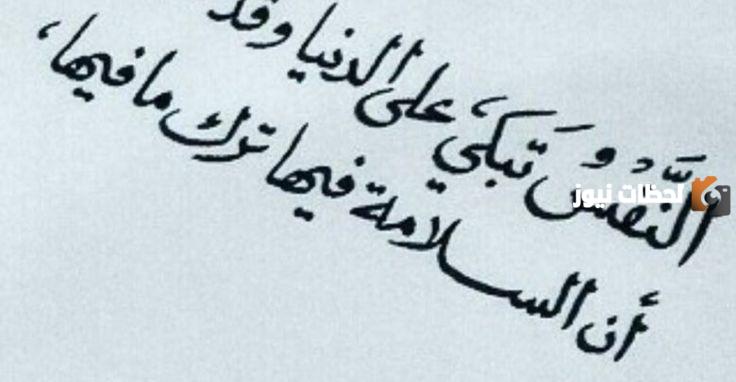 النَّفْسُ تَبكي على الدنيا وقد
أن السلامة فيها ترك ما فيها،
لحظات نيوز